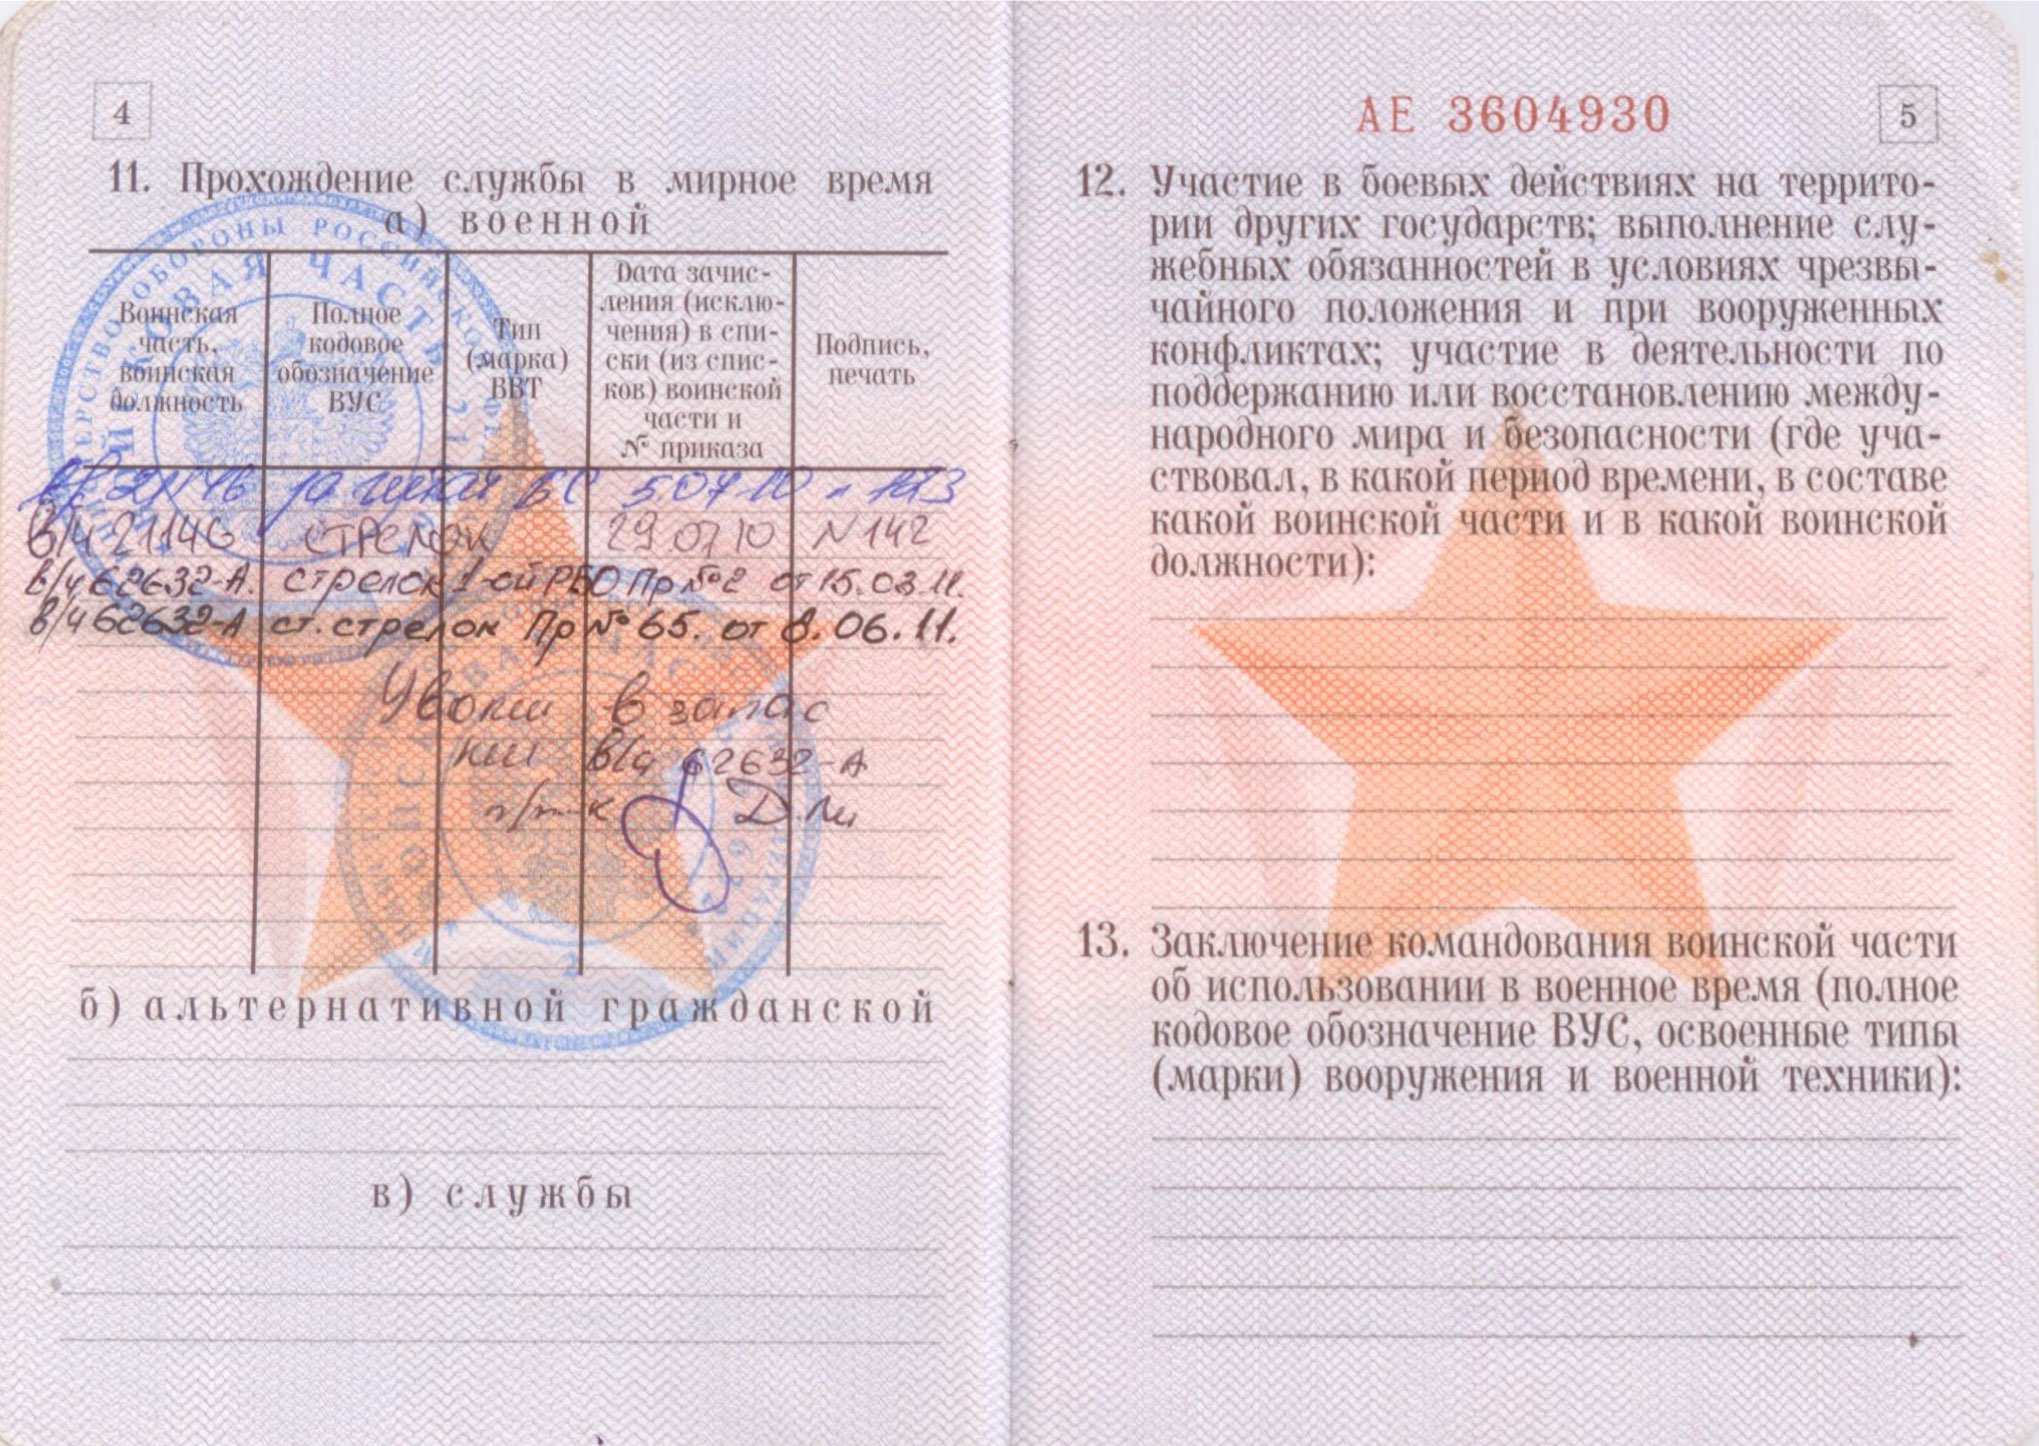 4
11. Прохождение службы в мирное время
а) военной
Воинская часть, воинская должность
Полное кодовое обозначение ВУС
Тип (марка) ВВТ
Дата зачис-
ления (исклю-
чения) в спи-
ски (из спис-
ков) воинской
части и
№ приказа
Подпись, печать
21146 БС 5.07.10
В/Ч 21146 СТРЕЛОК 29.07.10 N 142
в/ч 62632-А. стрелок 1-ой РБО Пр №2 от 15.03.11.
в/ч 62632-А ст. стрелок Пр №65. от 8.06.11.
Уволен в запас
в/ч 62632-А
п/п-к
б) альтернативной гражданской
в) службы
АЕ 3604930
5
12. Участие в боевых действиях на террито-
рии других государств; выполнение слу-
жебных обязанностей в условиях чрезвы-
чайного положения и при вооруженных
конфликтах; участие в деятельности по
поддержанию или восстановлению между-
народного мира и безопасности (где уча-
ствовал, в какой период времени, в составе
какой воинской части и в какой воинской
должности):
13. Заключение командования воинской части
об использовании в военное время (полное
кодовое обозначение ВУС, освоенные типы
(марки) вооружения и военной техники):